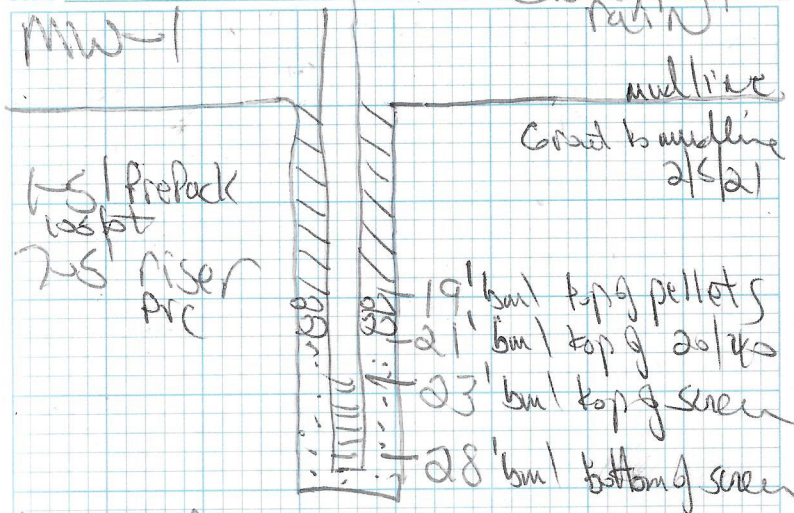 rain
MW-1
mudline
Grout to mudline
2/5/21
1-5' PrePack
10slot
7-5' riser
PVC
19' bml top of pellets
21' bml top of 20/40
23' bml top of screen
28' bml bottom of screen